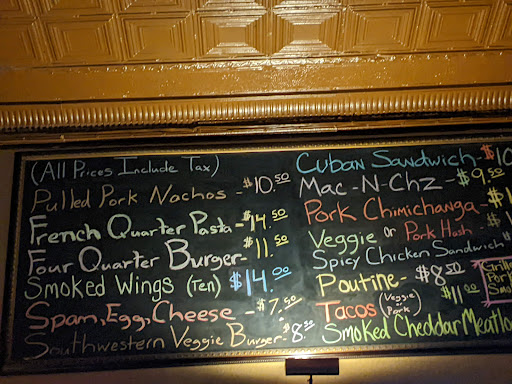 (All Prices Include Tax)
Pulled Pork Nachos - $10.50
French Quarter Pasta - $14.50
Four Quarter Burger - $11.50
Smoked Wings (Ten) $14.00
Spam, Egg, Cheese - $7.50
Southwestern Veggie Burger - $8.50
Cuban Sandwich - $10
Mac-N-Chz - $9.50
Pork Chimichanga - $1
Veggie or Pork Hash -
Spicy Chicken Sandwich
Poutine - $8.50
Tacos (Veggie or Pork) $11.00
Smoked Cheddar Meatlo
Grille
Por
Smo